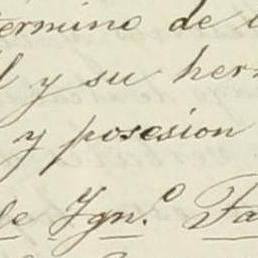 érmino de l
l y su her
y posesion
de Ygn.º Fa